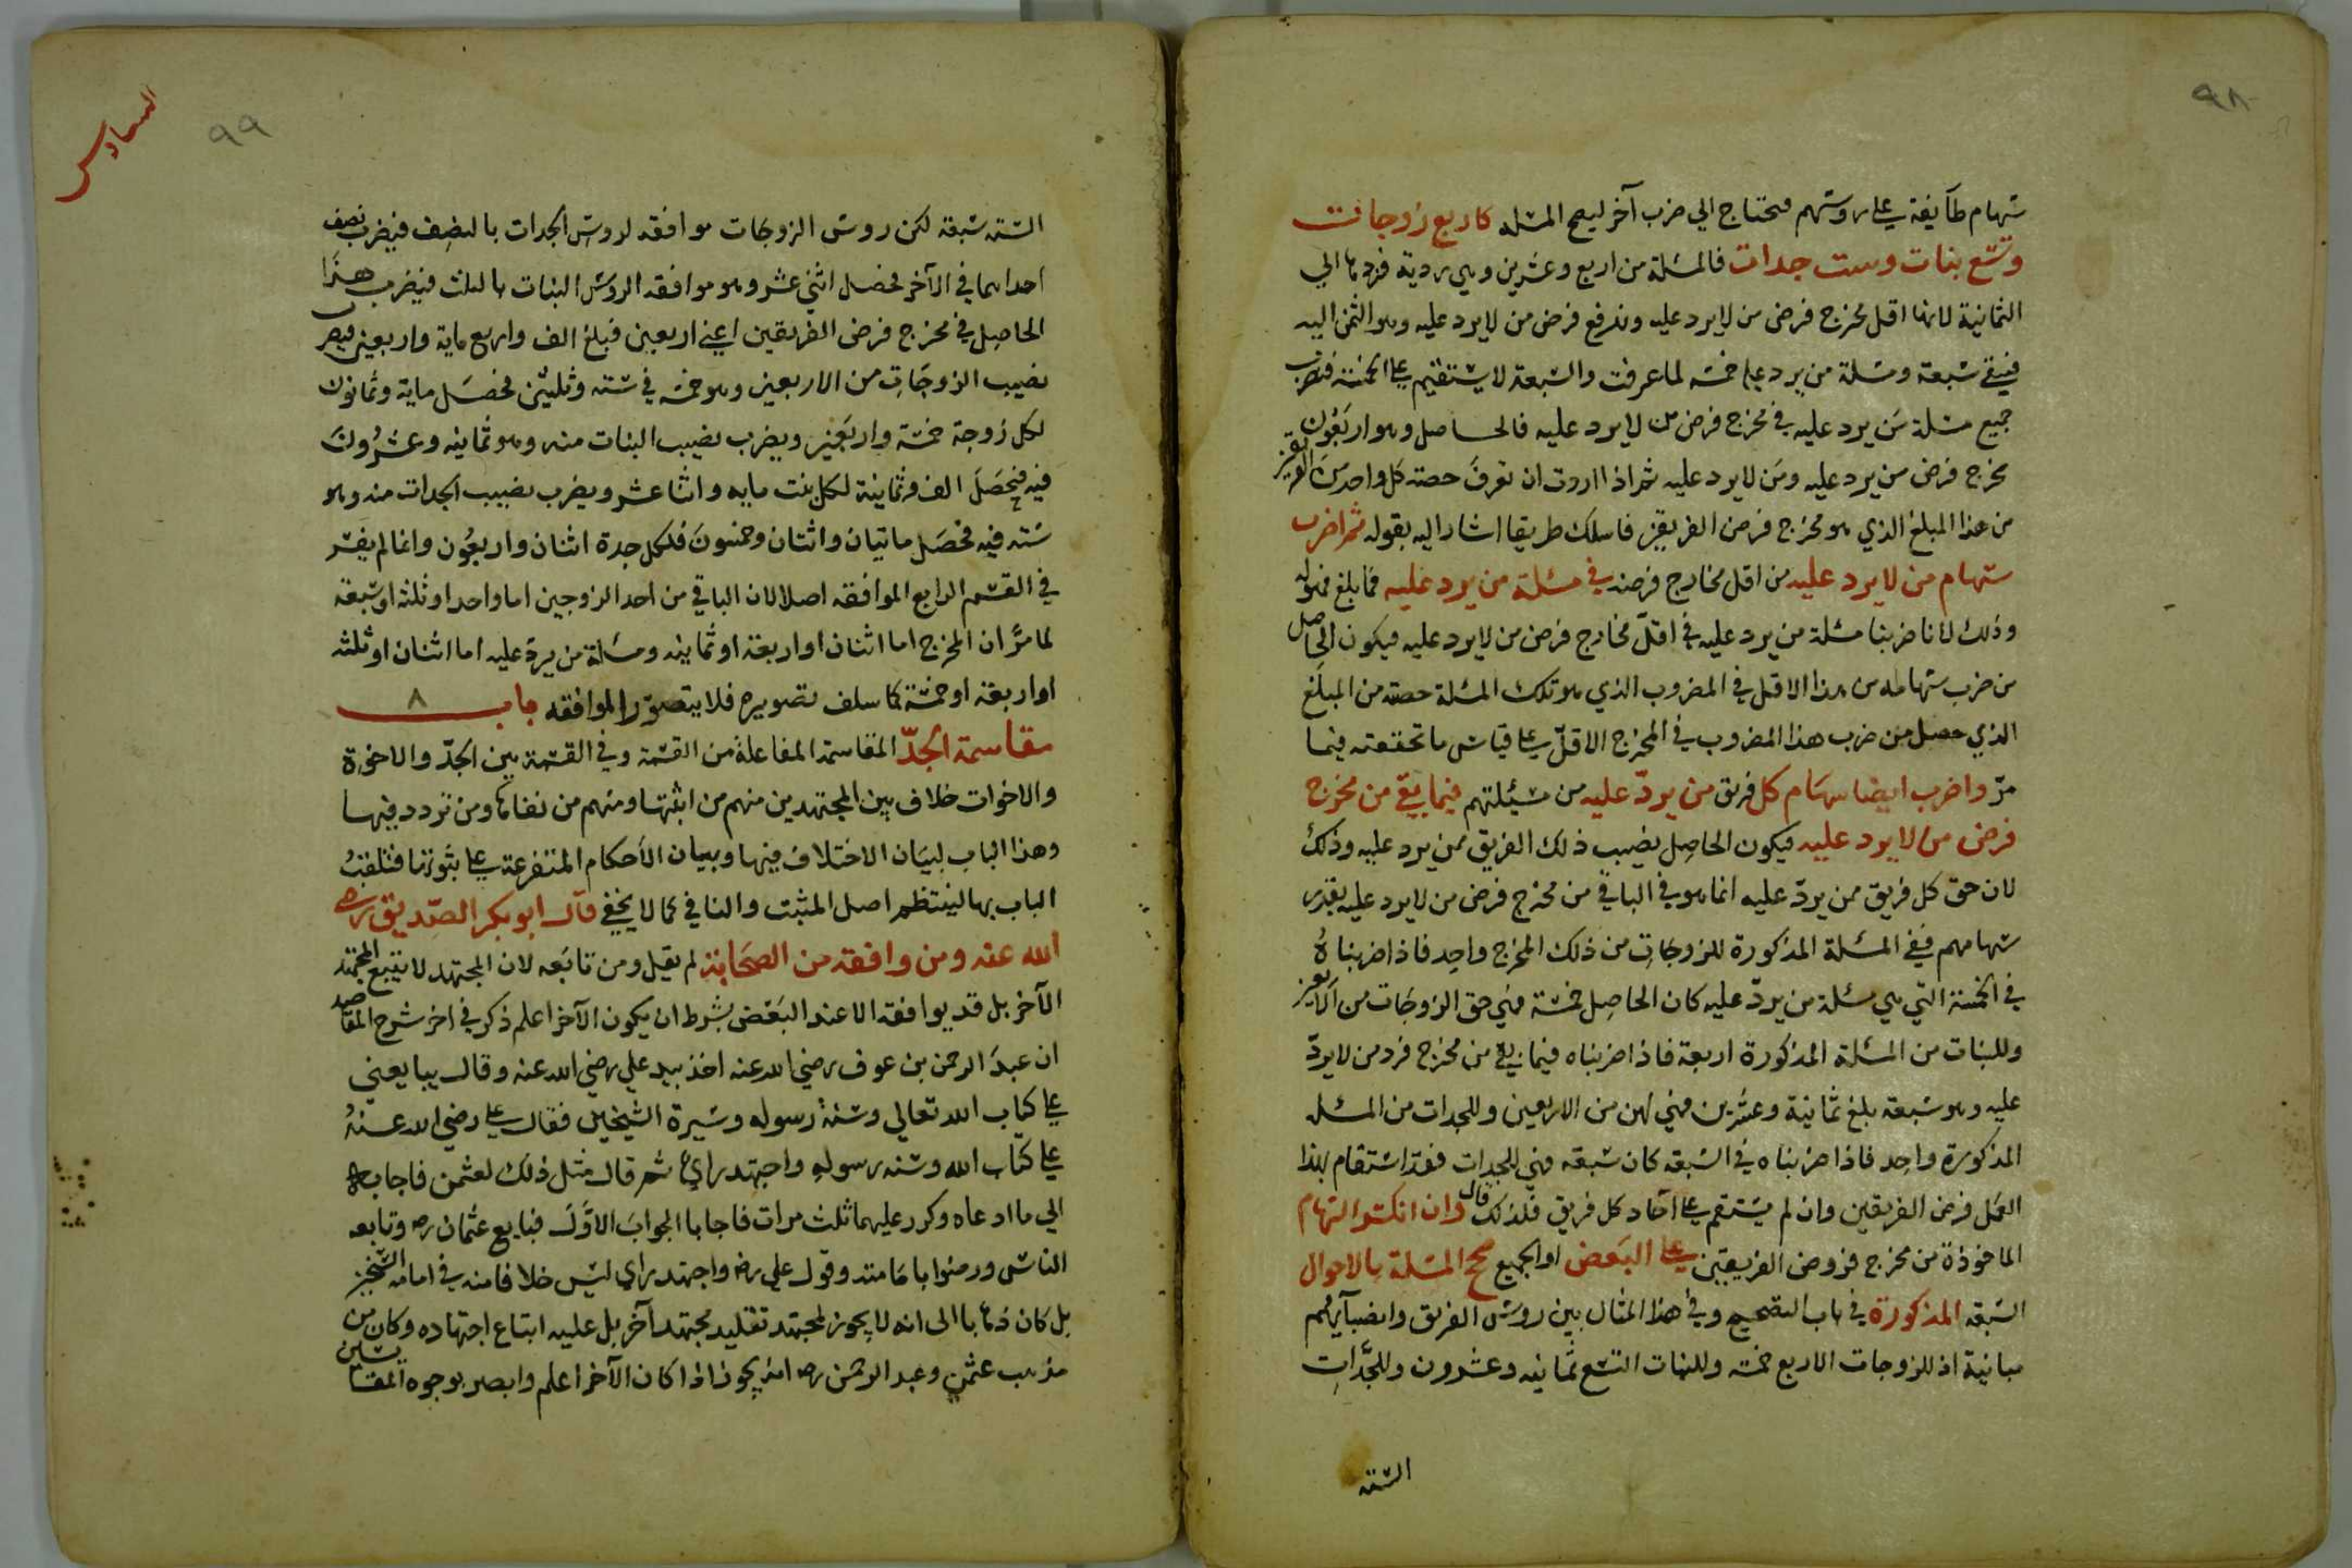 ٩٨
سهام طائفة على روسهم فتحتاج الي ضرب آخر ليصح المسئله كاربع زوجات
وتسع بنات وست جدات فالمسئلة من اربع وعشرين وهي ردية فردها الي
الثمانية لانها اقل مخرج فرض من لا يرد عليه وندفع فرض من لا يرد عليه وهو الثمن اليه
فيبقي سبعة ومسئلة من يرد عليه خمسه لما عرفت والسبعة لا يستقيم على الخمسة فنضرب
جميع مسئلة من يرد عليه في مخرج فرض من لا يرد عليه فالحاصل وهو اربعون
مخرج فرض من يرد عليه ومن لا يرد عليه ثم اذا اردت ان تعرف حصته كل واحد من الفريقين
من هذا المبلغ الذي هو مخرج فرض الفريقين فاسلك طريقا اشار اليه بقوله ثم اضرب
سهام من لا يرد عليه من اقل مخارج فرضه في مسئلة من يرد عليه فما بلغ فهو له
وذلك لانا ضربنا مسئلة من يرد عليه في اقل مخارج فرض من لا يرد عليه فيكون الحاصل
من ضرب سهامه من هذا الاقل في المضروب الذي هو تلك المسئلة حصته من المبلغ
الذي حصل من ضرب هذا المضروب في المخرج الاقل على قياس ما تحققته فيما
مرّ واضرب ايضا سهام كل فريق من يردّ عليه من مسئلتهم فيما بقي من مخرج
فرض من لا يرد عليه فيكون الحاصل نصيب ذلك الفريق ممن يرد عليه وذلك
لان حق كل فريق ممن يردّ عليه انما هو في الباقي من مخرج فرض من لا يرد عليه بقدر
سهامهم ففي المسئلة المذكورة للزوجات من ذلك المخرج واحد فاذا ضربناه
في الخمسة التي هي مسئلة من يردّ عليه كان الحاصل خمسة فهي حق الزوجات من الاربعين
وللبنات من المسئلة المذكورة اربعة فاذا ضربناه فيما بقي من مخرج فرد من لا يردّ
عليه وهو سبعة بلغ ثمانية وعشرين فهي لهن من الاربعين وللجدات من المسئله
المذكورة واحد فاذا ضربناه في السبعة كان سبعه فهي للجدات فقد استقام بهذا
العمل فرض الفريقين وان لم يستقم على آحاد كل فريق فلذلك قال وان انكسر السهام
الماخوذة من مخرج فروض الفريقين على البعض او الجميع صحح المسئلة بالاحوال
السبعه المذكورة في باب التصحيح وفي هذا المثال بين روس الفريق وانصبآئهم
مباينة اذ للزوجات الاربع خمسه وللبنات التسع ثمانيه وعشرون وللجدات
السته
السادس
٩٩
الستة سبعة لكن روس الزوجات موافقه لروس الجدات بالنصف فيضرب نصف
احداهما في الآخر فحصل اثني عشر وهو موافقه الروس البنات بالثلث فيضرب هذا
الحاصل في مخرج فرض الفريقين اعني اربعين فبلغ الف واربع ماية واربعين فيضرب
نصيب الزوجات من الاربعين وهو خمسة في سته وثلثين فحصل ماية وثمانون
لكل زوجة خمسة واربعين ويضرب نصيب البنات منه وهو ثمانيه وعشرون
فيه فحصل الف وثمانية لكل بنت مايه واثنا عشر ويضرب نصيب الجدات منه وهو
سبعه فيه فحصل مائتان واثنتان وخمسون فلكل جدة اثنان واربعون وانما لم يفسر
في القسم الرابع الموافقه اصلا لان الباقي من احد الزوجين اما واحد او ثلثه او سبعه
لما مرّ ان المخرج اما اثنان او اربعة او ثمانيه ومسئلة من يردّ عليه اما اثنان او ثلثه
او اربعة او خمسة كما سلف تصويره فلا يتصوّر الموافقه باب ٨
مقاسمة الجدّ المقاسمة المفاعلة من القسمة وفي القسمة بين الجدّ والاخوة
والاخوات خلاف بين المجتهدين منهم من اثبتها ومنهم من نفاها ومن تردد فيها
وهذا الباب لبيان الاختلاف فيها وبيان الاحكام المتفرعة على ثبوتها فتلقيب
الباب بها لينتظم اصل المثبت والنافي كما لا يخفي قال ابو بكر الصديق رضي
الله عنه ومن وافقه من الصحابة لم يقل ومن تابعه لان المجتهد لا يتبع المجتهد
الآخر بل قد يوافقه الا عند البعض بشرط ان يكون الآخر اعلم ذكر في اخر شرح المقاصد
ان عبد الرحمن بن عوف رضي الله عنه اخذ بيد علي رضي الله عنه وقال يبايعني
على كتاب الله تعالي وسنة رسوله وسيرة الشيخين فقال علي رضي الله عنه
على كتاب الله وسنه رسوله واجتهد رايي ثم قال مثل ذلك لعثمن فاجابه
الي ما ادعاه وكرر عليهما ثلث مرات فاجابا الجواب الاول فبايع عثمان رضه وتابعه
الناس ورضوا بامامته وقول علي رضه واجتهد راي ليس خلافا منه في امامه الشيخين
بل كان ذهابا الى انه لا يجوز لمجتهد تقليد مجتهد آخر بل عليه اتباع اجتهاده وكان من
مذهب عثمن وعبد الرحمن رضه انه يجوز اذا كان الآخر اعلم وابصر بوجوه المقايس